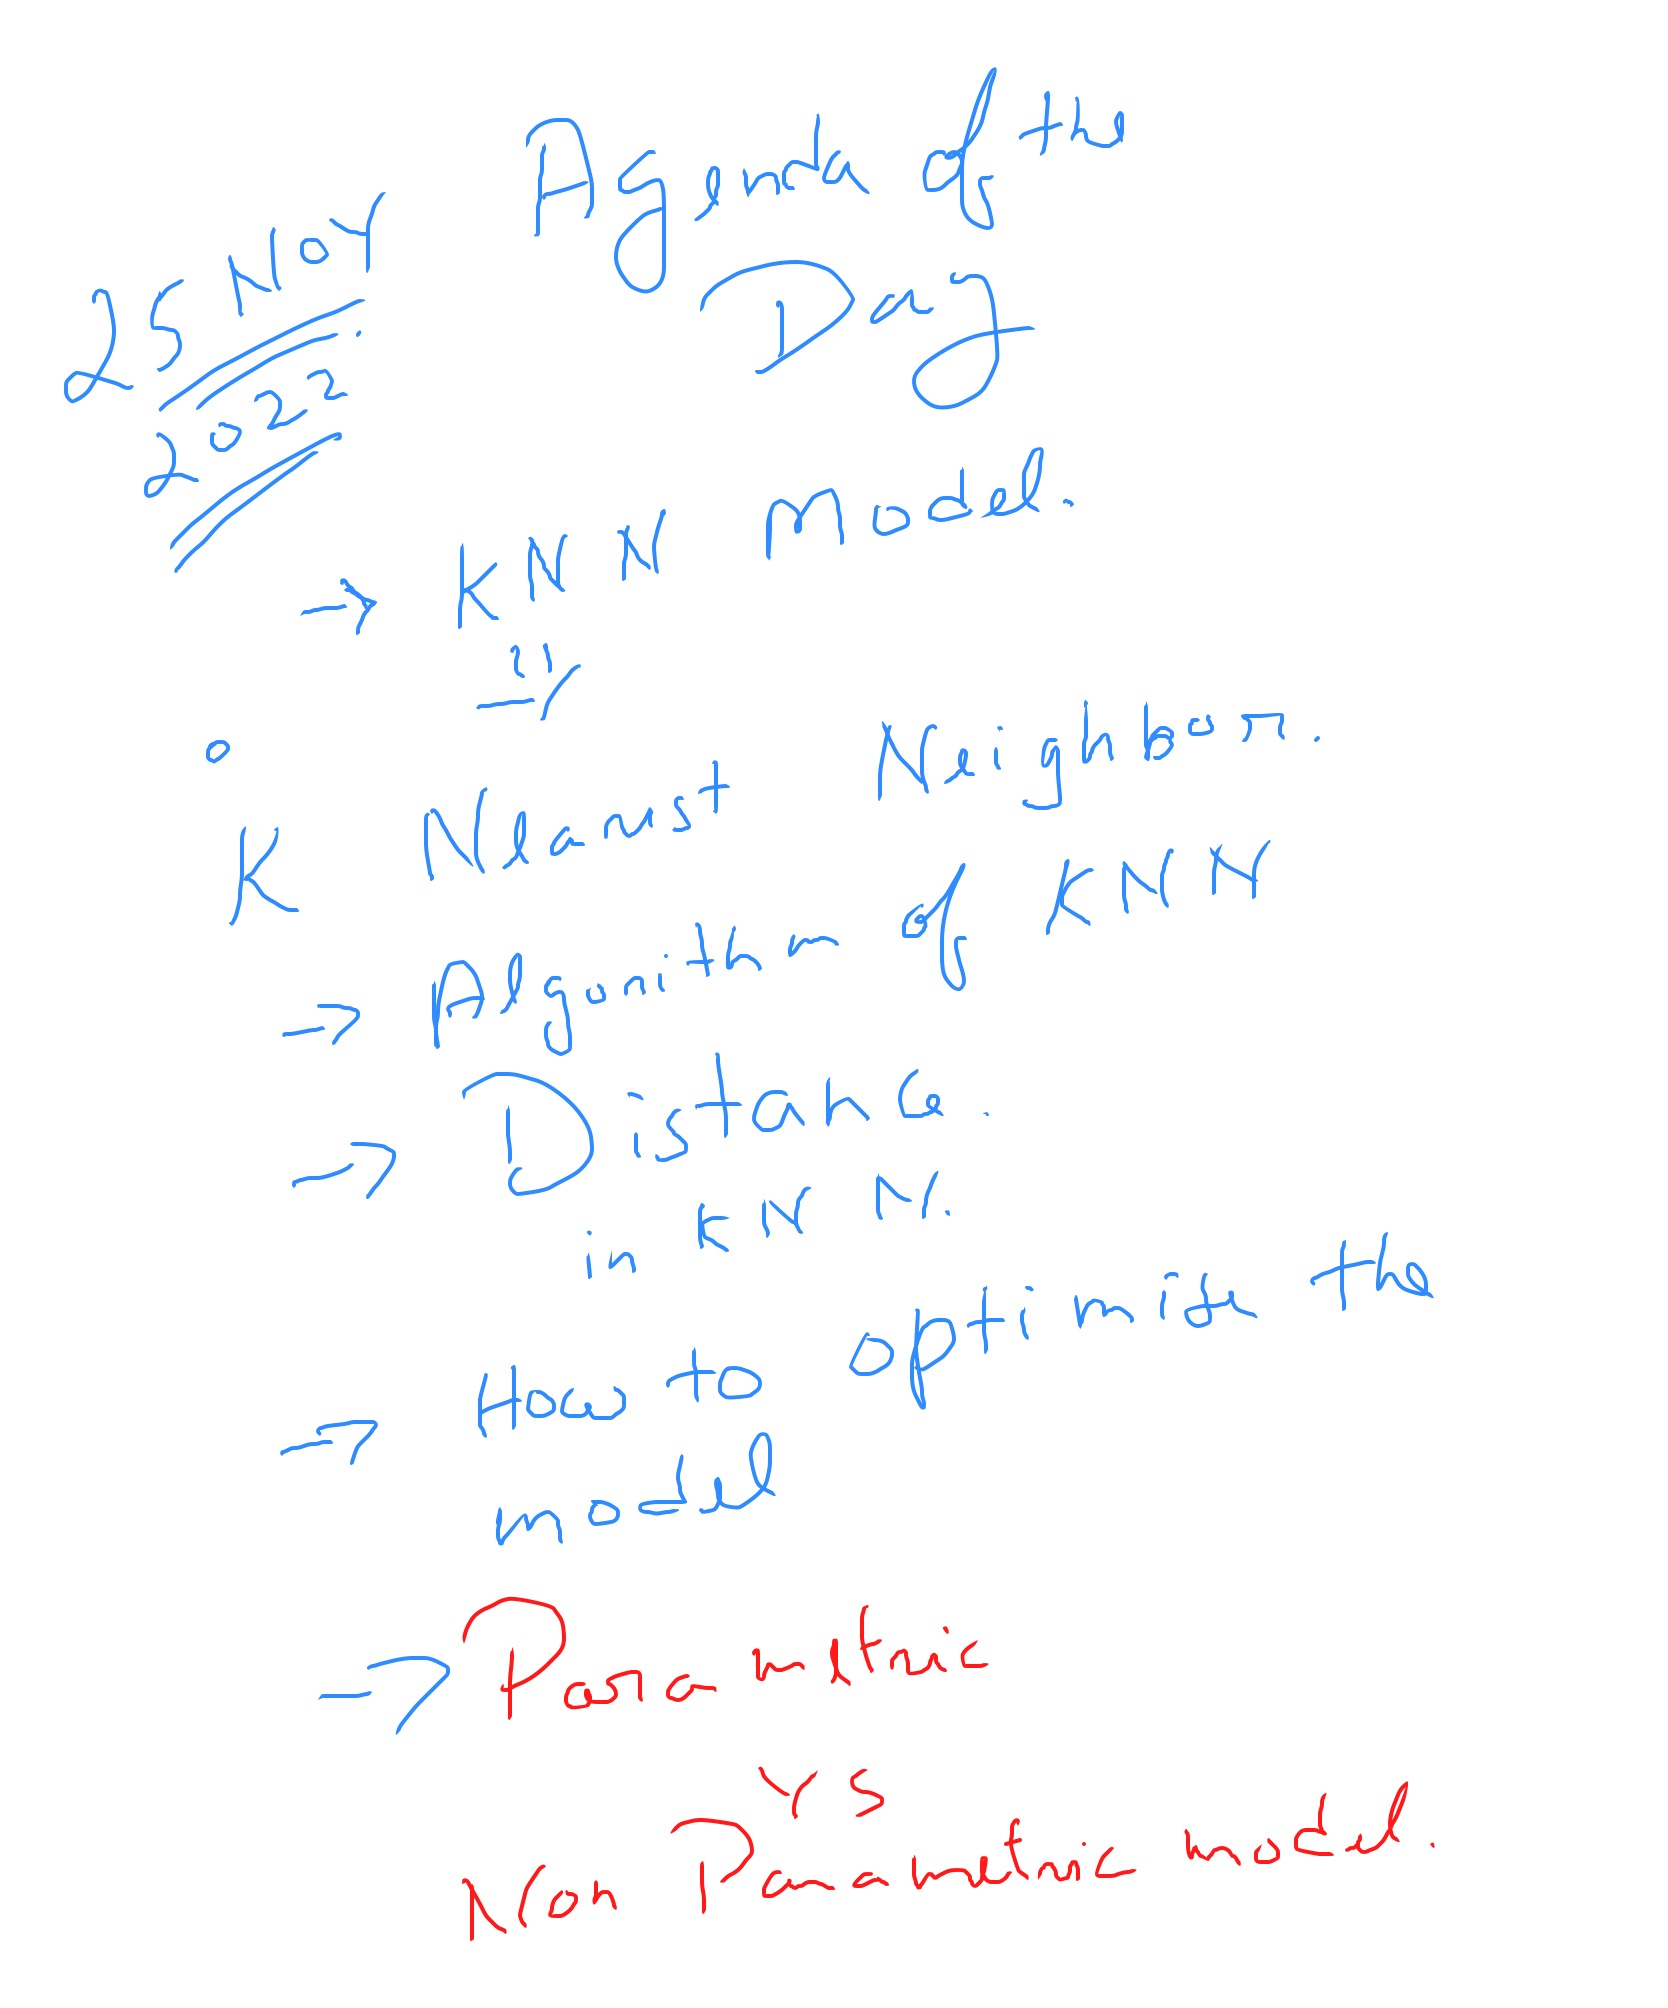 Agenda of the
Day
25 NOV
2022
→ KNN Model.
K Nearest Neighbor.
→ Algorithm of KNN
→ Distance.
in KNN.
→ How to optimize the
model
→ Parametric
VS
Non Parametric model.